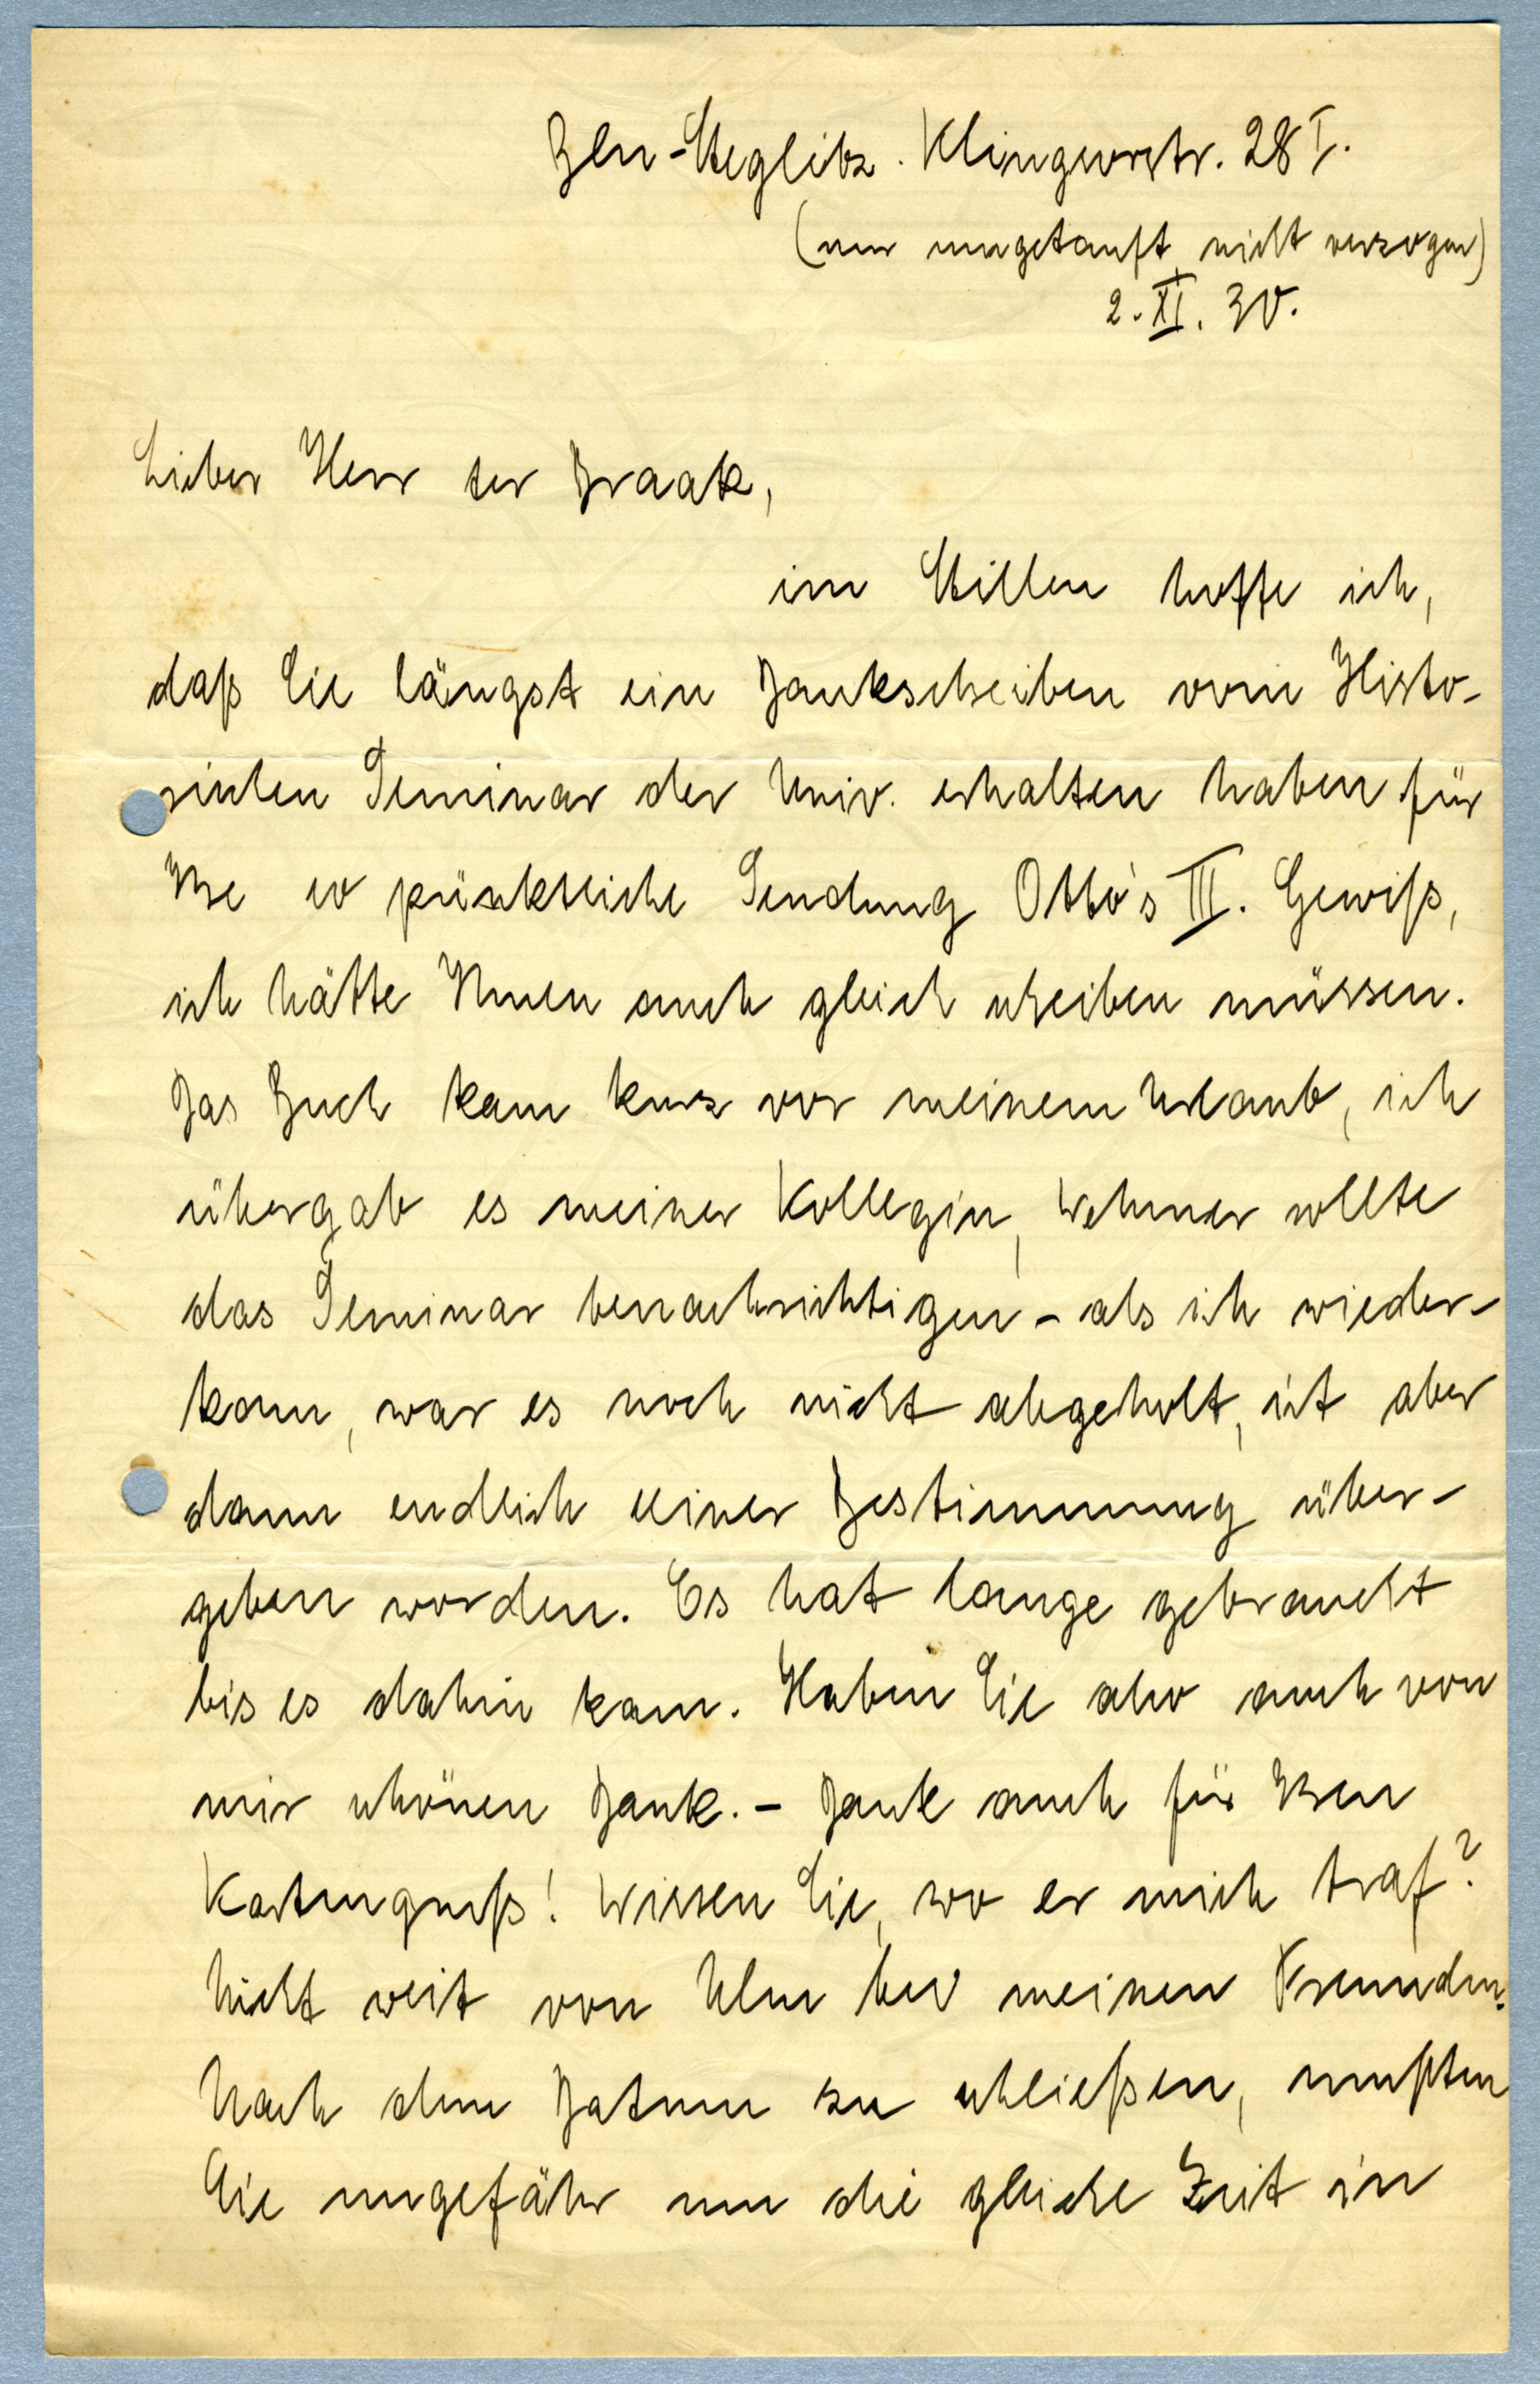 Bln-Steglitz. Klingsorstr. 28 I.
(nur umgetauft, nicht verzogen)
2. XI. 30.
Lieber Herr ter Braak,
im Stillen hoffe ich,
daß Sie längst ein Dankschreiben vom Histo-
rischen Seminar der Univ. erhalten haben für
Ihre so pünktliche Sendung Otto's III. Gewiß,
ich hätte Ihnen auch gleich schreiben müssen.
Das Buch kam kurz vor meinem Urlaub, ich
übergab es meiner Kollegin, Wehmer sollte
das Seminar benachrichtigen – als ich wieder-
kam, war es noch nicht abgeholt, ist aber
dann endlich seiner Bestimmung über-
geben worden. Es hat lange gebraucht
bis es dahin kam. Haben Sie also auch von
mir schönen Dank. – Dank auch für Ihren
Kartengruß! Wissen Sie, wo er mich traf?
Nicht weit von Ulm bei meinen Freunden.
Nach dem Datum zu schließen, mußten
Sie ungefähr um die gleiche Zeit in